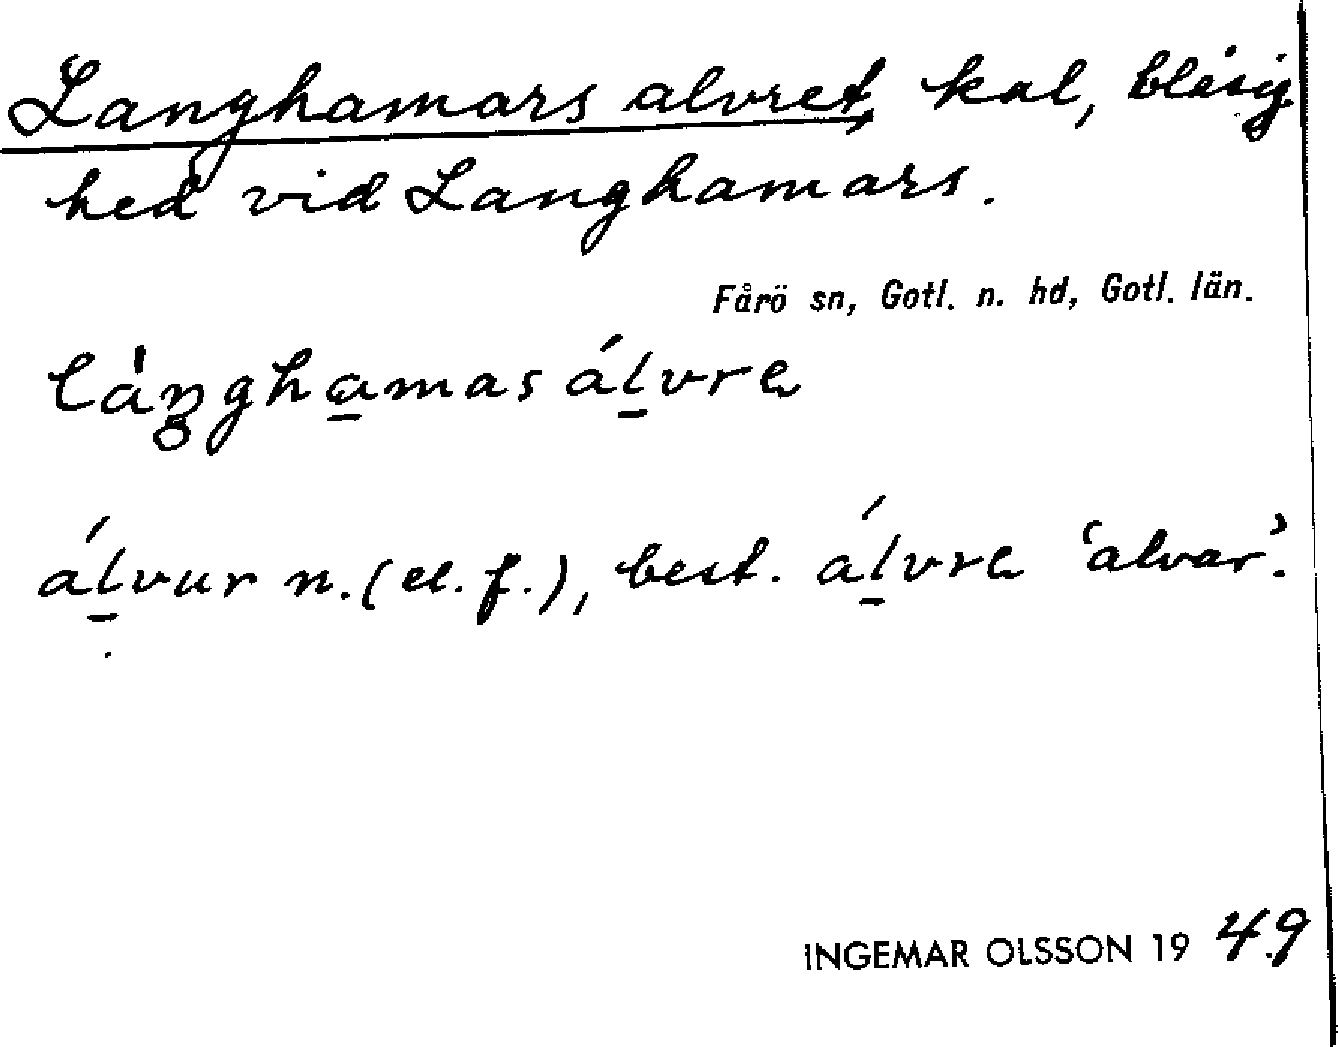 Langhamars alvret, kal, blåsig
hed vid Langhamars.
Fårö sn, Gotl. n. hd, Gotl. län.
láŋ̥gha̱mas áḻvre
áḻvur n. (el. f.), best. áḻvre ‘alvar’.
INGEMAR OLSSON 19 49